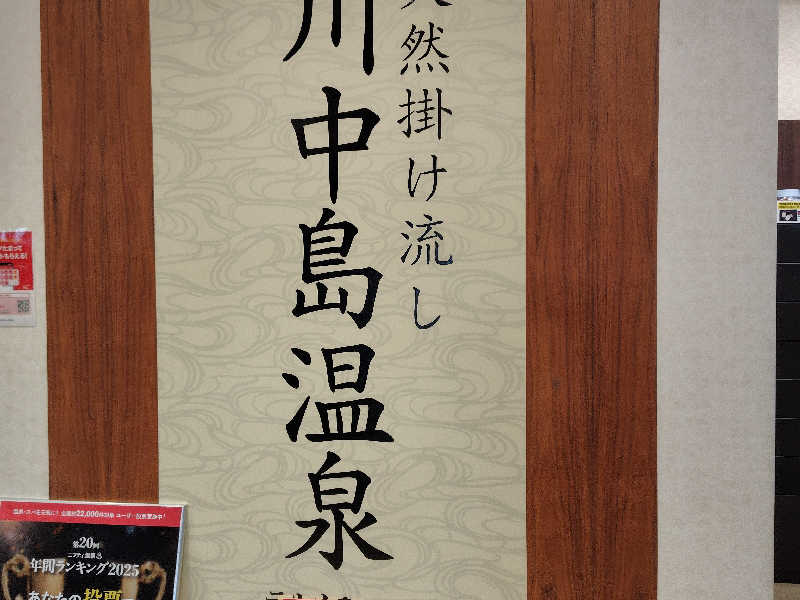 天然掛け流し
川中島温泉
第20回
ニフティ温泉
年間ランキング2025
あなたの投票